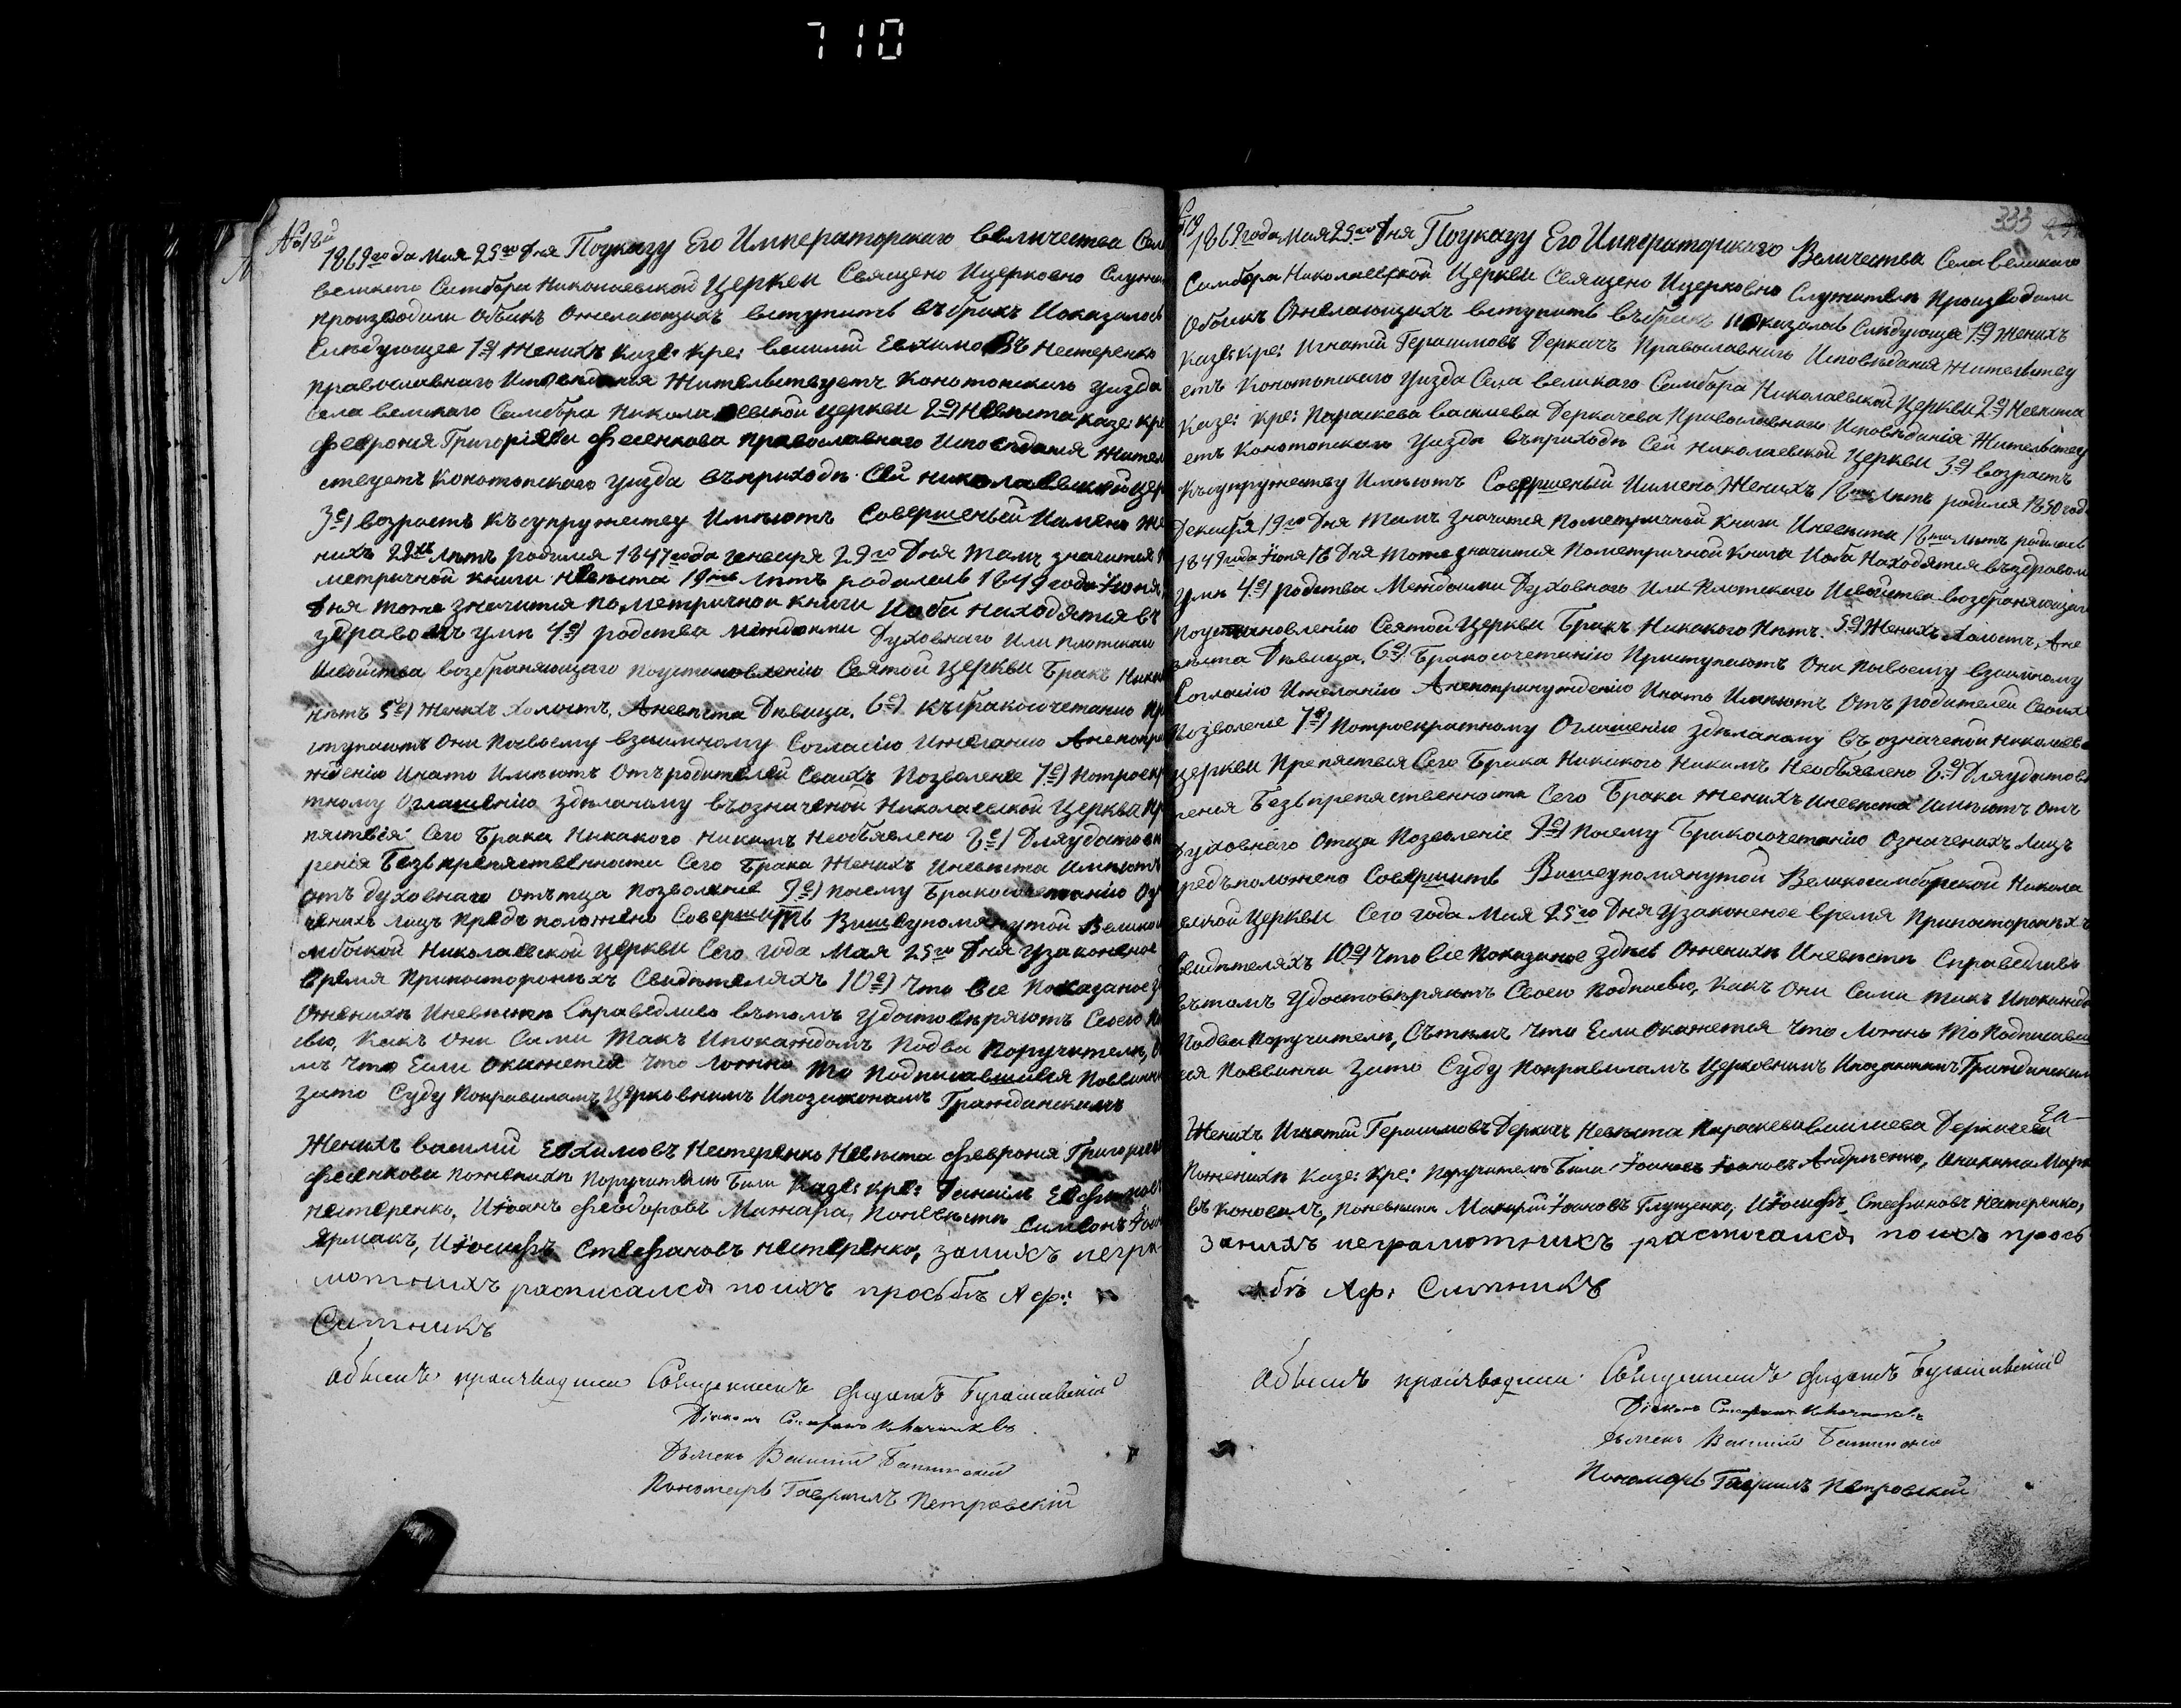 710
№ 18й
1869го да Мая 25го Дня Поуказу Его Императорского величества Сел
великого Самбора Николаевской Церкви Священо Ицерковно Служи
производили Обыскъ Ожелающихъ вступить въбракъ Иоказалось
Следующее 1е) Женихъ Казе: кре: василий Евхимовъ Нестеренко
православнаго Исповедания Жительствуетъ Конотопского уизда
села великаго Самбора Николаевской церкви 2е) Невъста казе: кре
Феврония Григоріева Фесенкова православнаго Исповедания жител
ствуетъ Конотопского уизда въприходъ Сей николаевской цер
3е) возрастъ Късупружеству Имъютъ Совершеный Имено Же
нихъ 22хъ лътъ родился 1847 года генваря 29го Дня Тамъ значится
метричной книги Невъста 19ть лътъ родилась 1849 года Іюня
Дня тоже значится пометричной книги Иоба находятся въ
здравомъ умъ 4е) родства междоими Духовнаго Или плотскаго
Исвойства возбраняющаго поустановленію Святой церкви Бракъ Ника
нътъ 5е) Женихъ Холостъ, Аневъста Дъвица. 6е) Къбракосочетанию При
ступаютъ Они Посвоему взаимному Согласію Ижеланию Анепопри
ждению Инато Имъютъ Отъродителей Своихъ Позволение 7е) Потроекра
тному Оглашению здъланому възначеной Николаевской Церкви Пр
пятствія Сего Брака Никакого Никимъ Необявлено 8е) Дляудостовъ
ренія Безъпрепятственности Сего Брака Женихъ Иневъста Имъютъ
отъ духовнаго отътца позволение 9е) поему Бракосочетанию Озн
ченихъ лицъ Предъположено Совершить Вишеупомянутой Великоса
мбоской Николаевской церкви Сего года Мая 25го Дня Узаконеное
время Припосторонихъ Свидътеляхъ 10е) Что все Показаное з
Оженихъ Иневъстъ Справедливо вътомъ Удостовъряютъ Своею По
сью, Какъ Они Сами Такъ Ипокаждомъ Подва Поручителъ, С
мъ Что Если Окажется Что Ложно То Подписавшийся Повинни
зато Суду Поправиламъ Церковнимъ Ипозаконамъ Гражданскимъ
Женихъ василий Евхимовъ Нестеренко Невъста Феврония Григориева
Фесенкова Поженихъ Поручителъ Были Казе: Кре: Даниилъ Евфимовъ
Нестеренко, Иіоанъ Феодоровъ Мажара, Поневъстъ Симеонъ Іоан
Ярмакъ, Иіосифъ Стефановъ Нестеренко, за нихъ негра-
мотнихъ расписался по ихъ просьбъ Аф:
Ситникъ
Обыскъ производили Священникъ
Діаконъ
Дьячекъ Василий
Пономарь Гавриилъ Петровский
333
№ 19
1869 года Мая 25го Дня Поуказу Его Императорскаго Величества Села великаго
Самбора Николаевской Церкви Священо Ицерковно Служителъ Производили
Обыскъ Ожелающихъ вступить въбракъ Показалось Слъдующее 1е) Женихъ
Казе: кре: Игнатий Герасимовъ Деркачъ Православнаго Исповъдания Жительству
етъ Конотопскаго Уизда Села великаго Самбора Николаевской Церкви 2е) Невъста
Казе: кре: Параскева василиева Деркачева Православнаго Исповъданія Жительству
етъ Конотопскаго Уизда въприходъ Сей Николаевской Церкви 3е) возрастъ
Късупружеству Имъютъ Совершеный Имено Женихъ 18ть лътъ родился 1850 года
Декабря 19го Дня Тамъ значится Пометричной Книги Иневъста 18ть лътъ родилась
1849 года Іюня 16 Дня Тоже значится Пометричной Книга Иоба Находятся въздравом
умъ 4е) родства Междоими Духовнаго Или Плотскаго Исвойства возбраняющаго
Поустановленію Святой Церкви Бракъ Никакого Нътъ. 5е) Женихъ Холостъ, Ане
въста Дъвица. 6е) Бракосочетанію Приступаютъ Они Посвоему взаимному
Согласію Ижеланію Анепопринуждению Инато Имъютъ Отъ родителей Своихъ
Позволение 7е) Потроекратному Оглашению Здъланому въ означеной Николаев
церкви Препятствия Сего Брака Никакого Никимъ Необъявлено 8е) Дляудостовъ
рения Безъпрепятственности Сего Брака Женихъ Иневъста Имъютъ отъ
духовнаго Отца Позволеніе 9е) Поему Бракосочетанію Означенихъ Лицъ
редъположено Совершить Вишеупомянутой Великосамборской Никола
евской Церкви Сего года Мая 25го Дня Узаконеное время Припосторонихъ
видътеляхъ 10е) Что все Показаное здъсь Оженихъ Иневъстъ Справедливо
вътомъ Удостовъряютъ Своею Подписью, Какъ Они Сами такъ Ипокаждо
Подва Поручителъ, Сътъмъ Что Если Окажется Что Ложно То Подписавши
ся Повинни Зато Суду Поправиламъ Церковнимъ Ипозаконамъ Гражданским
Женихъ Игнатий Герасимовъ Деркачъ Невъста Параскева василиева Деркачева
Поженихъ Казе: Кре: Поручителъ Были Іоановъ Андриенко, Оникита Мар
въ Коноваль, Поневъстъ Макарий Іоановъ Глущенко, Иіосифъ Стефановъ Нестеренко,
За нихъ неграмотнихъ расписался по ихъ прось
бъ Аф: Ситникъ
Обыскъ производили Священникъ
Діаконъ
Дьячекъ Василий
Пономарь Гавриилъ Петровский